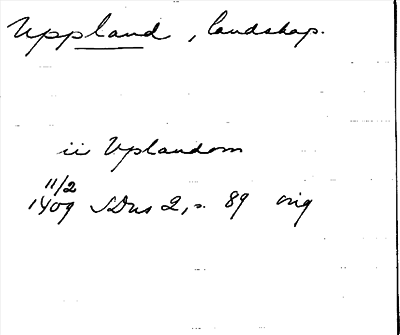 Uppland, landskap.
ii Uplandom
11/2
1409 SDns 2, s. 89 orig